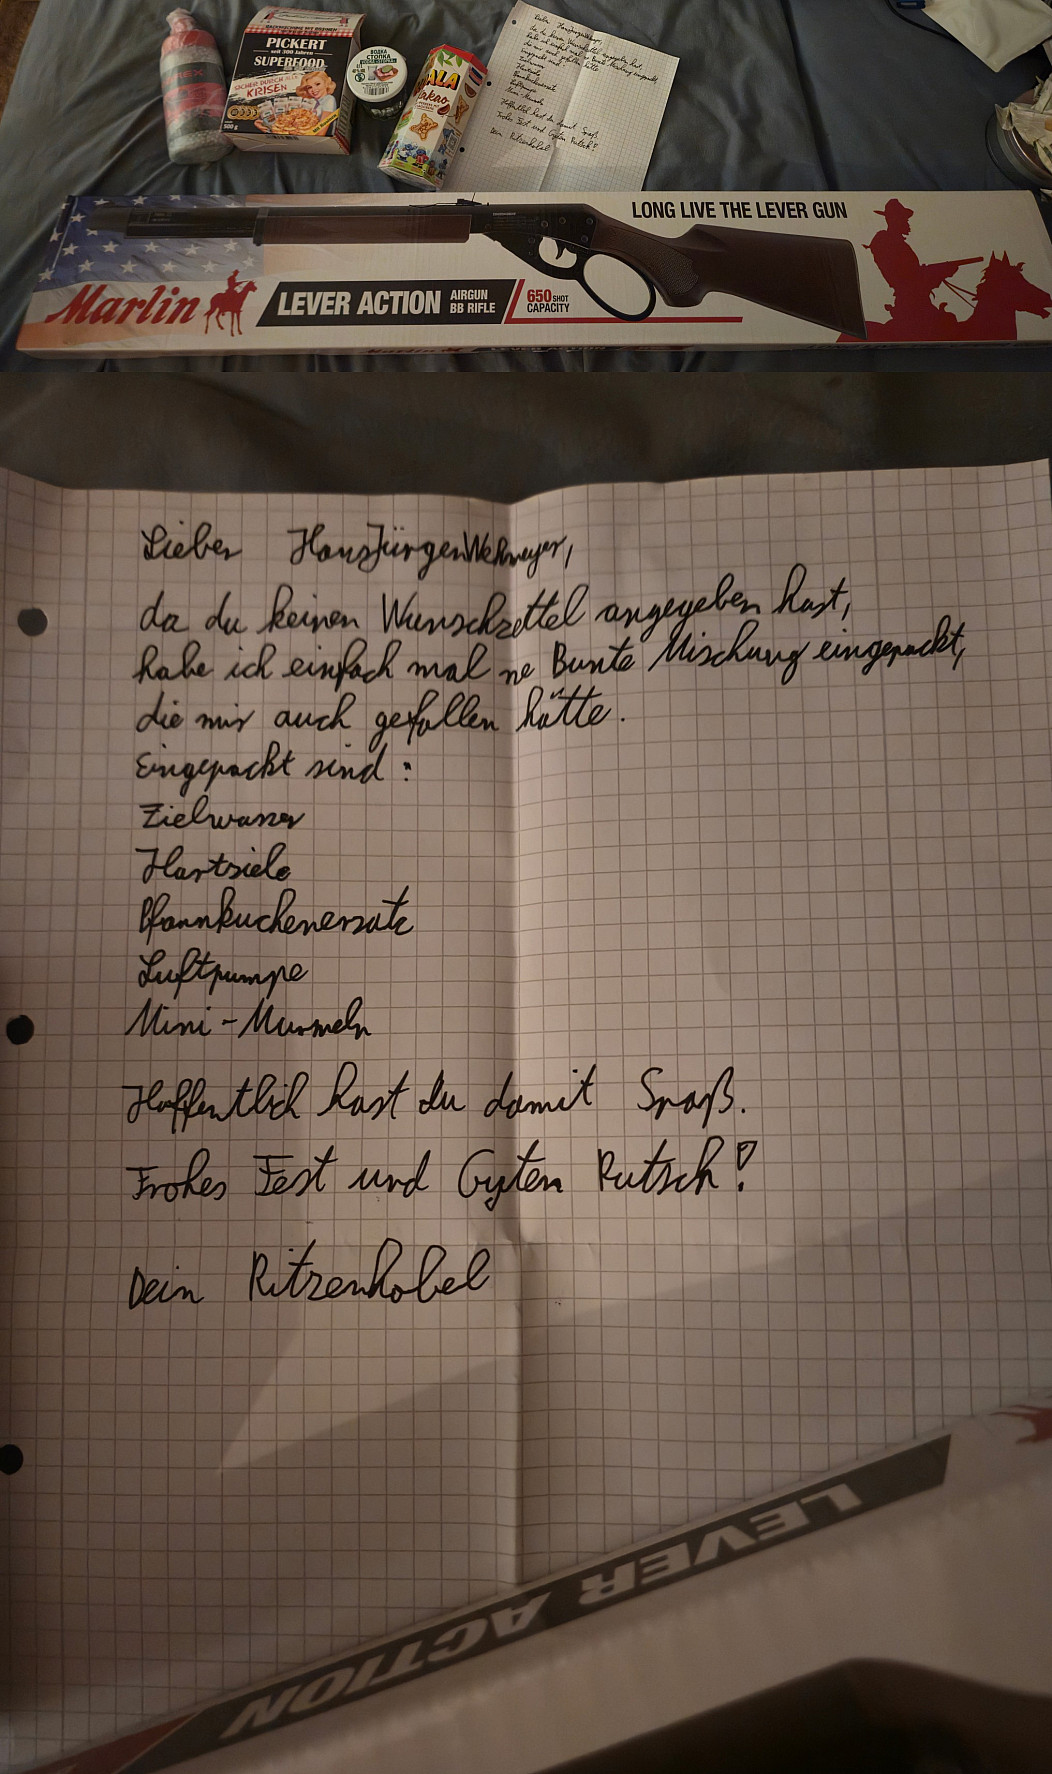 PICKERT
seit 300 Jahren
SUPERFOOD
SICHER DURCH ALLE
KRISEN
500 g
ВОДКА
СТОПКА
ALA
Kakao
Marlin
LEVER ACTION
AIRGUN
BB RIFLE
650 SHOT
CAPACITY
LONG LIVE THE LEVER GUN
Lieber HansJürgenWehmeyer,
da du keinen Wunschzettel angegeben hast,
habe ich einfach mal ne Bunte Mischung eingepackt,
die mir auch gefallen hätte.
Eingepackt sind:
Zielwasser
Hartziele
Pfannkuchenersatz
Luftpumpe
Mini-Murmeln
Hoffentlich hast du damit Spaß.
Frohes Fest und Guten Rutsch!
Dein Ritzenhobel
LEVER ACTION